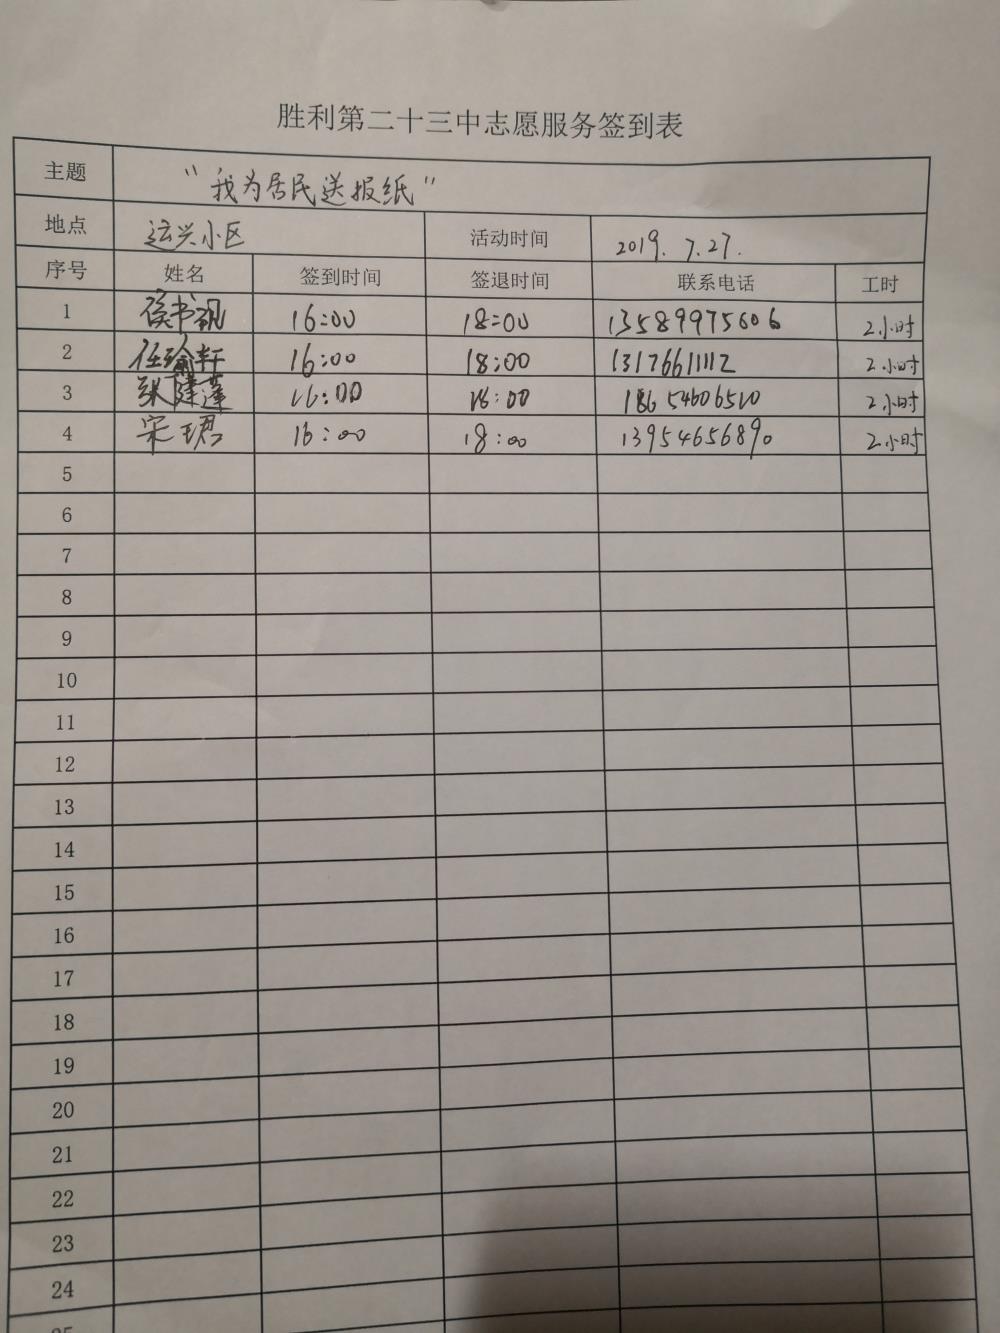 胜利第二十三中志愿服务签到表
主题 “我为居民送报纸”
地点 运兴小区 活动时间 2019.7.27.
序号 姓名 签到时间 签退时间 联系电话 工时
1 侯书 16:00 18:00 13589975606 2小时
2 任瑜轩 16:00 18:00 13176611112 2小时
3 张建莲 16:00 18:00 18654606510 2小时
4 宋珺 16:00 18:00 13954656890 2小时
5
6
7
8
9
10
11
12
13
14
15
16
17
18
19
20
21
22
23
24
25